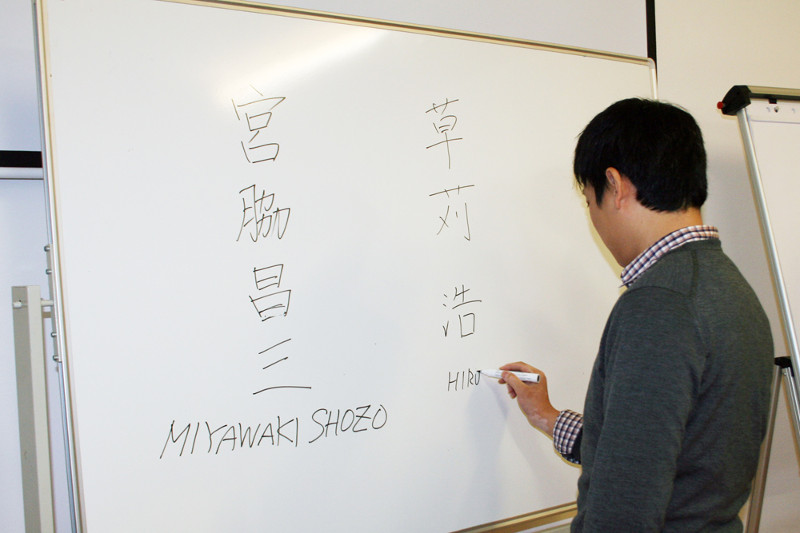 宮脇昌三
MIYAWAKI SHOZO
草苅浩
HIRO